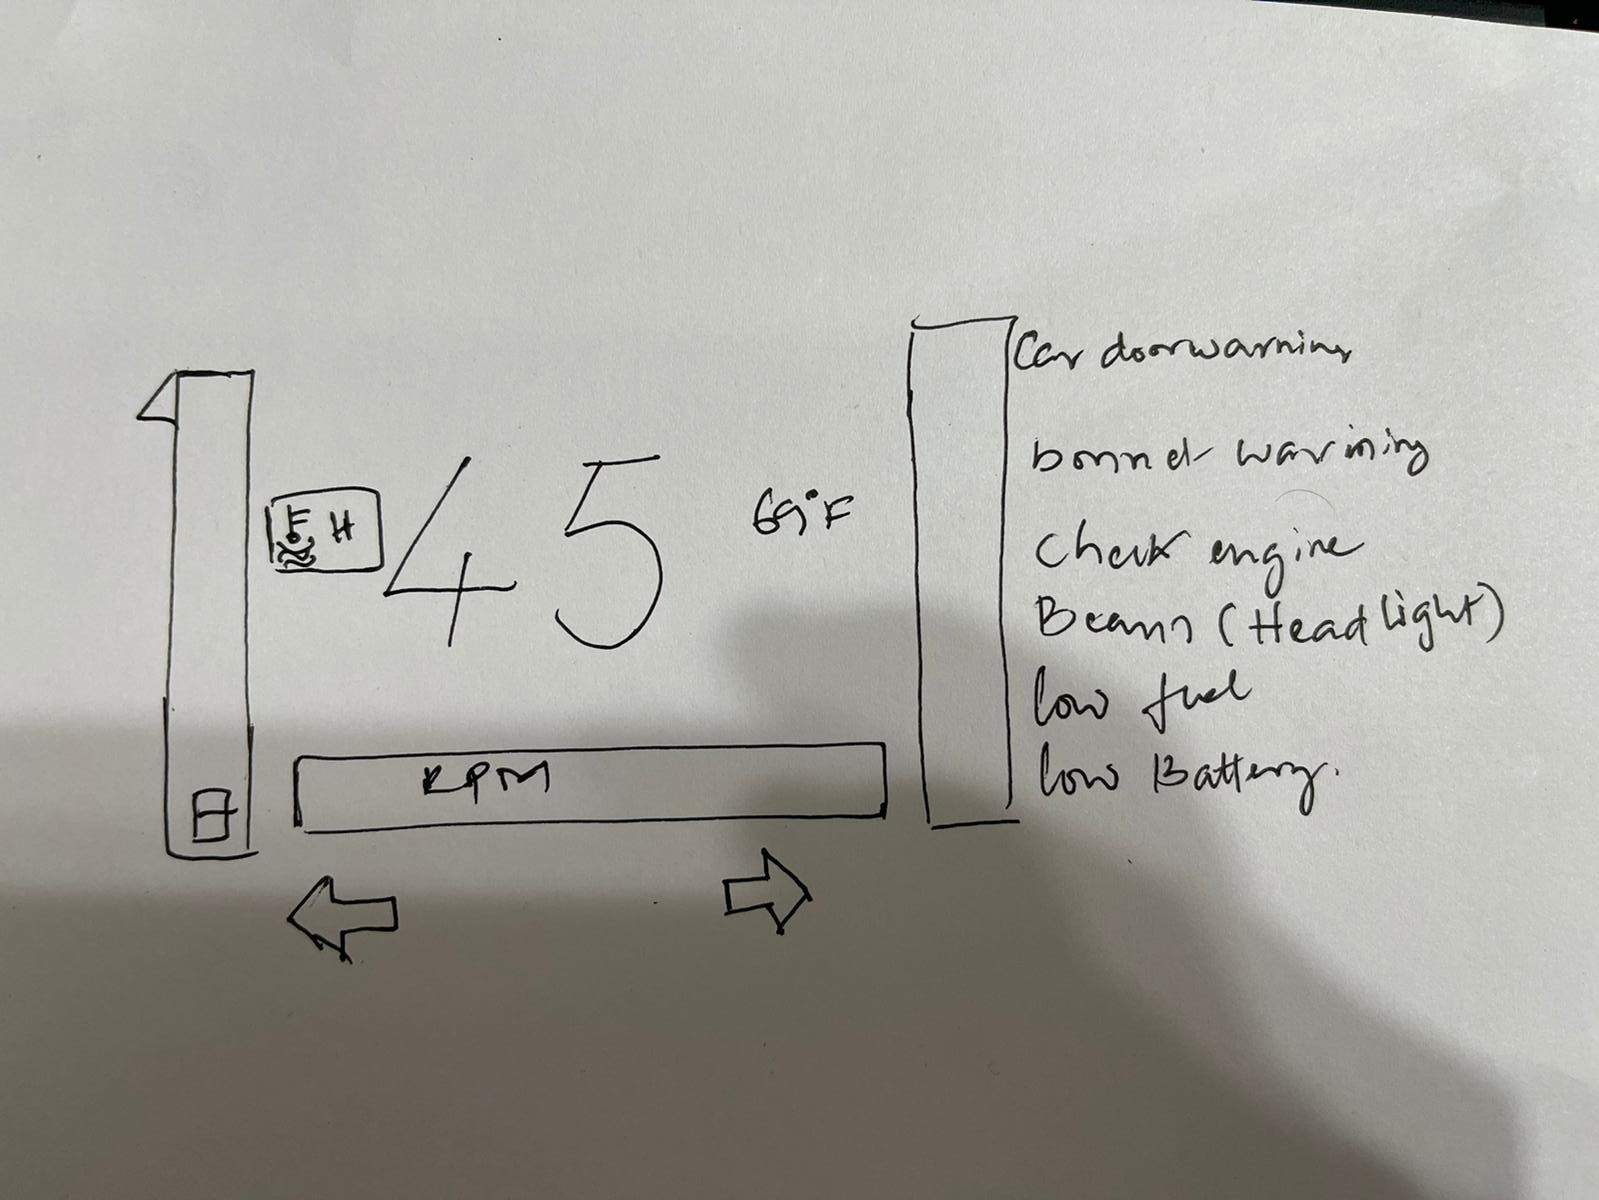 H
45
69°F
RPM
Car doorwarning
bonnet warining
Check engine
Beams (Head light)
low fuel
low Battery.